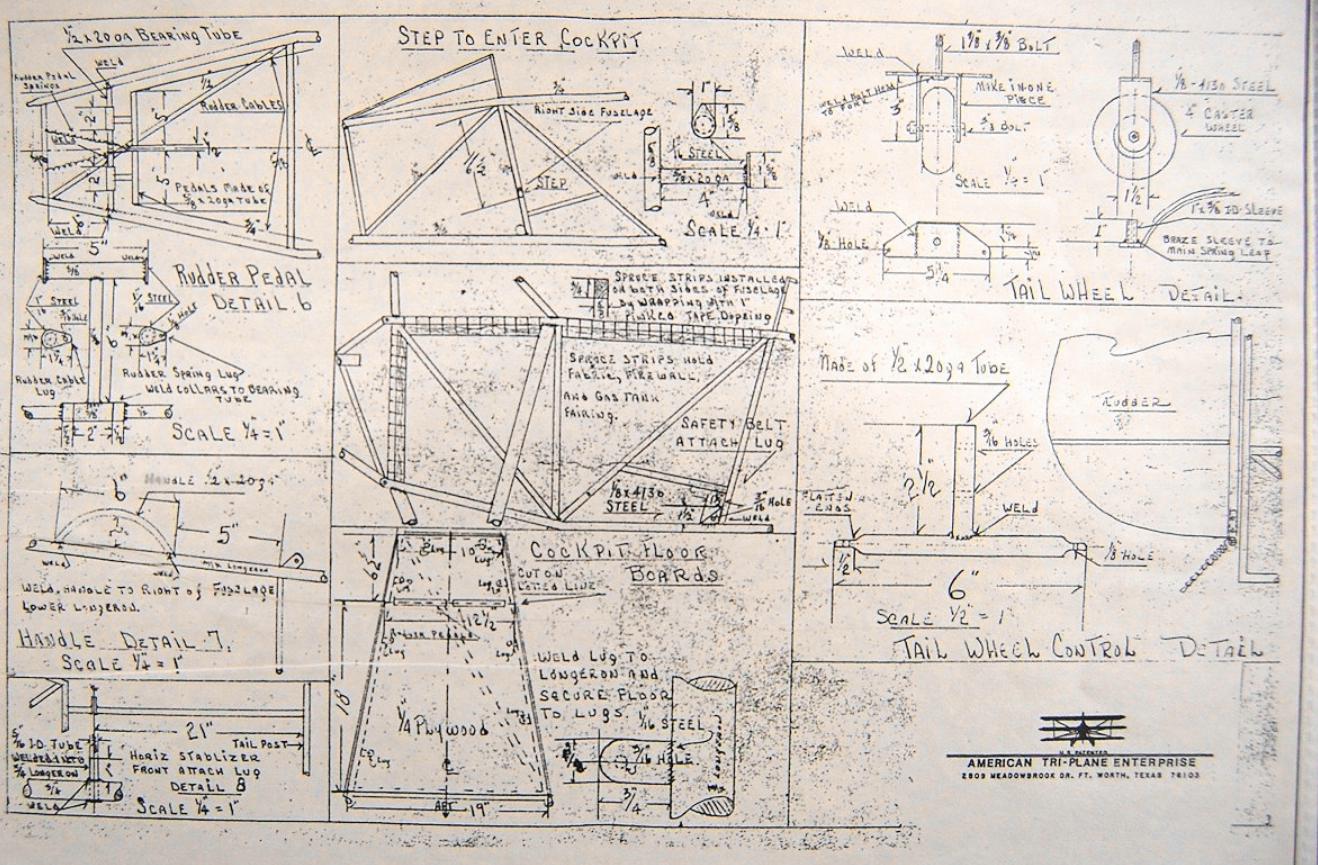 1/2 x 20ga Bearing Tube
WELD
Rudder Pedal
Springs
1/2
Rudder Cables
2"
5"
WELD
Pedals Made of
5/8 x 20ga Tube
3/4
WELD
5"
WELD
Rudder Pedal
Detail 6
STEEL
1/16 STEEL
Hole
6"
1 1/4
1 1/4
Rudder Cable
Lug
Rudder Spring Lug
Weld Collars to Bearing
Tube
2"
Scale 1/4 = 1"
Step to Enter Cockpit
3/4
Right Side Fuselage
1"
6 1/2
STEP
1/16 STEEL
5/8 x 20ga
4"
WELD
WELD
Scale 1/4 = 1"
Spruce Strips Installed
on Both Sides of Fuselage
by Wrapping with 1"
Pinked Tape, Doping
Spruce Strips Hold
Fabric, Firewall,
and Gas Tank
Fairing.
Safety Belt
Attach Lug
1/8 x 4130
STEEL
1 1/2
3/16 HOLE
WELD
WELD
1 3/8 x 3/8 Bolt
Make in One
Piece
3/8 Bolt
Scale 1/4 = 1"
1/8 - 4130 Steel
4" Caster
Wheel
1 1/2
WELD
1/8 Hole
5 1/4
1"
1" x 3/8 I.D. Sleeve
Braze Sleeve to
Main Spring Leaf
Tail Wheel Detail
Handle 1/2 x 20ga
6"
5"
WELD
WELD
Longeron
Weld Handle to Right of Fuselage
Lower Longeron.
Handle Detail 7.
Scale 1/4 = 1"
Made of 1/2 x 20ga Tube
Rudder
3/16 HOLES
2 1/2
WELD
Flatten
Ends
1/2
1/8 HOLE
6"
Scale 1/2 = 1
Tail Wheel Control Detail
21"
Tail Post
5/16 I.D. Tube
Welded into
3/4 Longeron
3/4
WELD
Horiz Stablizer
Front Attach Lug
Detail 8
Scale 1/4 = 1"
Cockpit Floor
Boards
Cut on
Line
12 1/2
Lug
Lug
18"
1/4 Plywood
Lug
AFT
19"
Weld Lug to
Longeron and
Secure Floor
to Lugs.
1/16 STEEL
3/16 HOLE
3/4
Longeron
U.S. PATENTED
AMERICAN TRI-PLANE ENTERPRISE
2809 MEADOWBROOK DR. FT. WORTH, TEXAS 76103